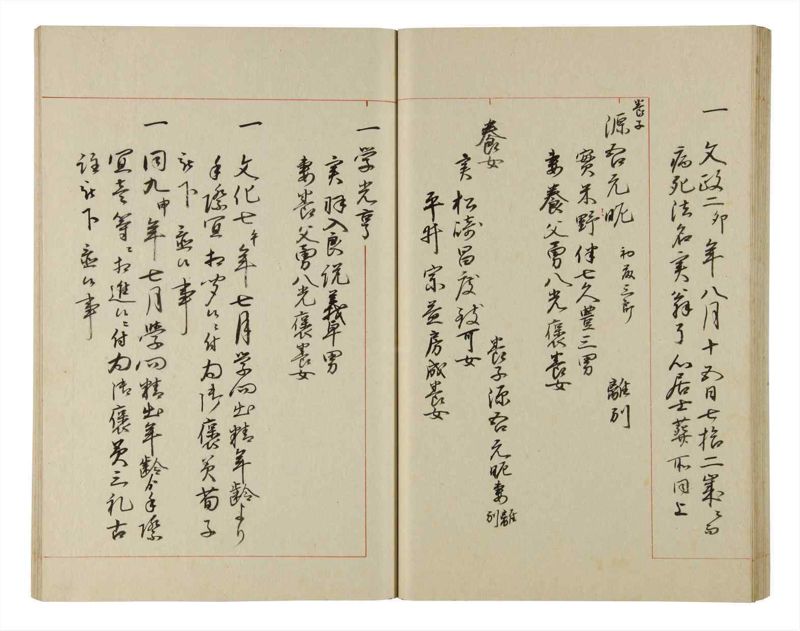 一 文政二卯年八月十五日七拾二歳ニ而
病死法名実翁了心居士葬所同上
養子
源吾元昵 初 三郎 離別
實 米野伴七久豊三男
妻養父勇八光褒養女
養女
養子源吾元昵妻 離別
実 松崎昌度 女
平井宗益房成養女
一 学光亨
実 羽入良悦義 男
妻養父勇八光褒養女
一 文化七午年七月学問出精年齢より
手際宜相聞候ニ付為御褒美荀子
被下置候事
一 同九申年七月学問精出年齢より手際
宜 等ニ相進候ニ付為御褒美三礼古
註被下置候事